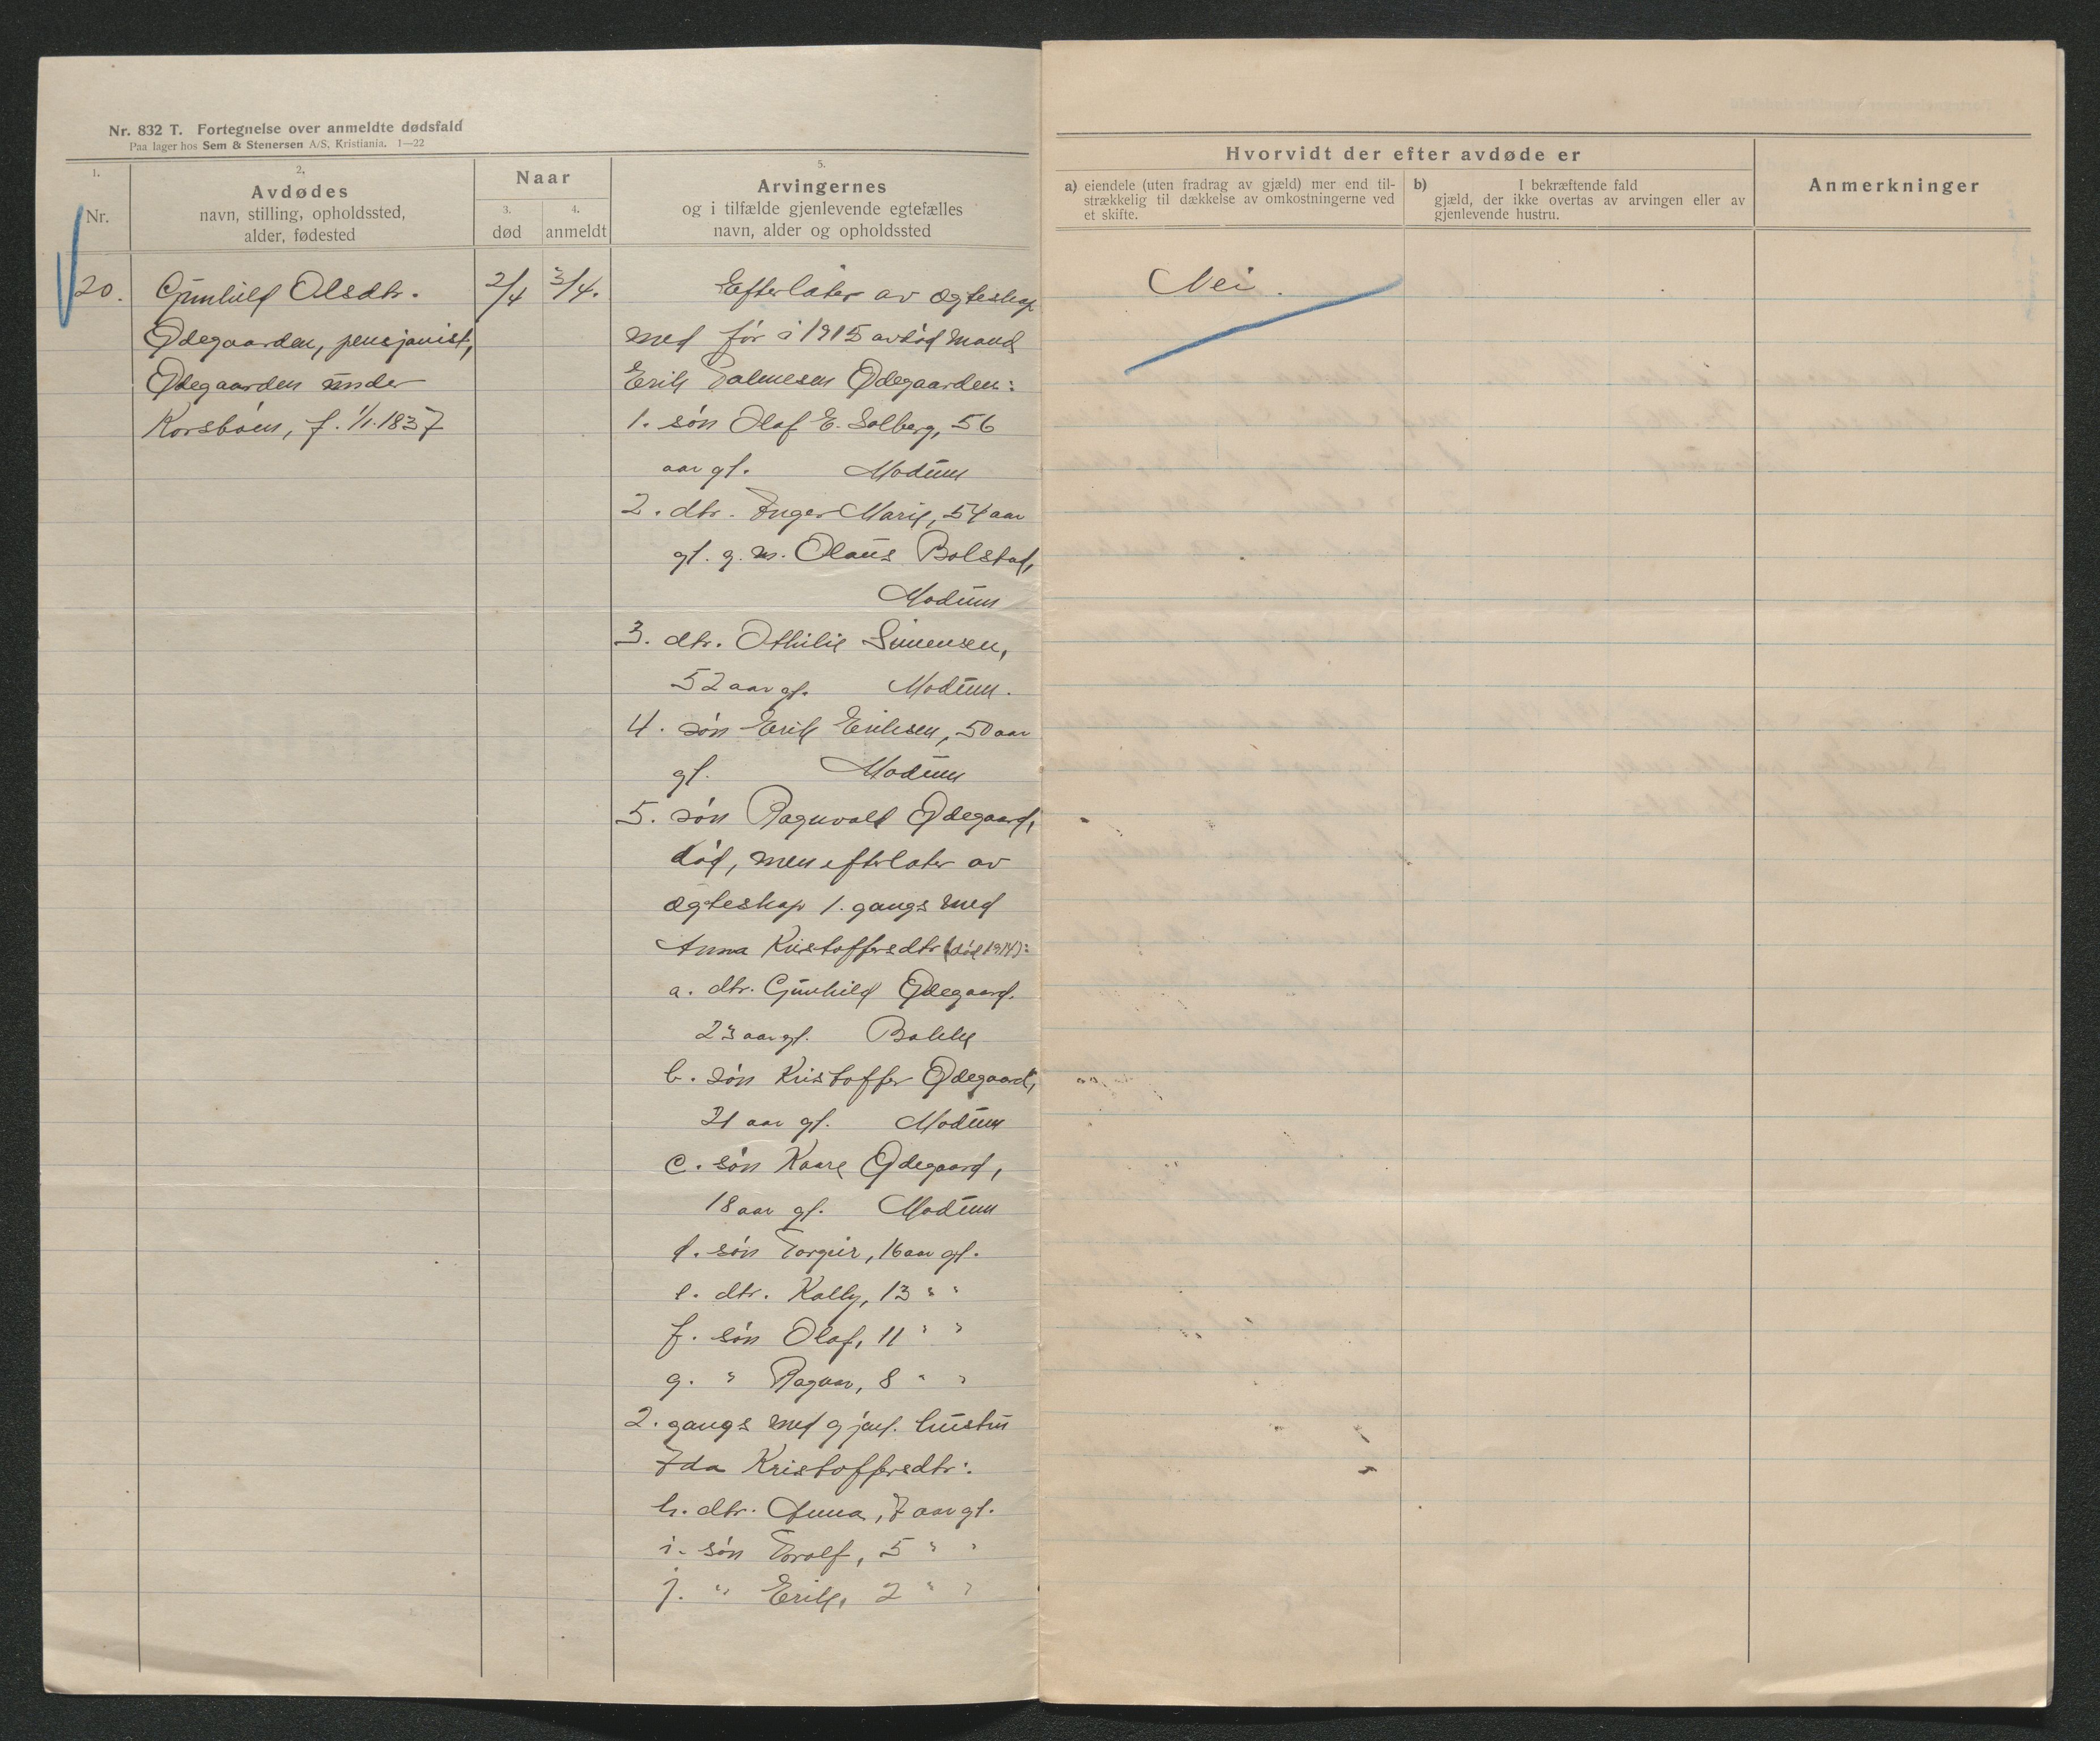 Nr. 832 T. Fortegnelse over anmeldte dødsfald
Paa lager hos Sem & Stenersen A/S, Kristiania. 1—22
1.
Nr.
2.
Avdødes
navn, stilling, opholdssted,
alder, fødested
Naar
3.
død
4.
anmeldt
5.
Arvingernes
og i tilfælde gjenlevende egtefælles
navn, alder og opholdssted
Hvorvidt der efter avdøde er
a) eiendele (uten fradrag av gjæld) mer end til-
strækkelig til dækkelse av omkostningerne ved
et skifte.
b) I bekræftende fald
gjæld, der ikke overtas av arvingen eller av
gjenlevende hustru.
Anmerkninger
20.
Gunhild Olsdtr.
Ødegaarden, pensjonist,
Ødegaarden under
Korsbøen, f. 1/1.1837
2/4
3/4.
Efterlater av ægteskap
med før i 1915 avdød mand
Erik Ødegaarden:
1. søn Olaf E. Solberg, 56
aar gl. Modum
2. dtr. Inger Marie, 54 aar
gl. g. m. Olaus Bolstad,
Modum
3. dtr. Othilie Simensen,
52 aar gl. Modum.
4. søn Erik Eriksen, 50 aar
gl. Modum
5. søn Ragnvald Ødegaard,
død, men efterlater av
ægteskap 1. gangs med
Anna Kristoffersdtr (død 1914):
a. dtr. Gunhild Ødegaard.
23 aar gl. Bakke
b. søn Kristoffer Ødegaard,
21 aar gl. Modum
c. søn Kaare Ødegaard,
18 aar gl. Modum
d. søn Torgeir, 16 aar gl.
e. dtr. Kally, 13 " "
f. søn Olaf, 11 " "
g. " Ragnar, 8 " "
2. gangs med gjenl. hustru
Ida Kristoffersdtr:
h. dtr. Anna, 7 aar gl.
i. søn Torolf, 5 " "
j. " Erik, 2 " "
Nei.